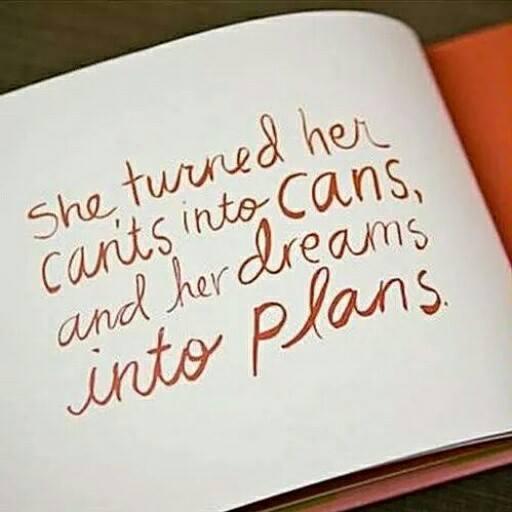 She turned her
can'ts into cans,
and her dreams
into plans.